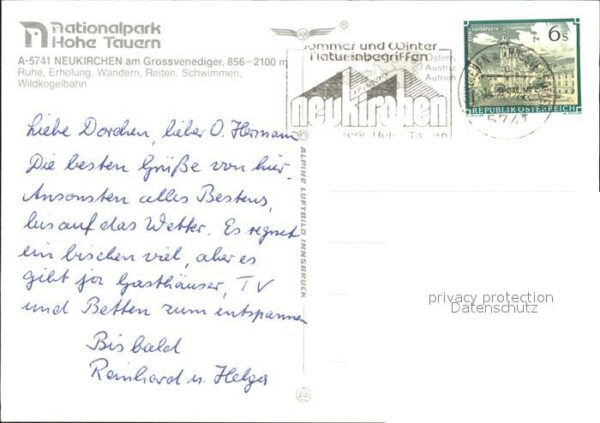 Nationalpark
Hohe Tauern
A-5741 NEUKIRCHEN am Grossvenediger, 856–2100 m
Ruhe, Erholung, Wandern, Reiten, Schwimmen,
Wildkogelbahn
Sommer und Winter
Naturinbegriffen
neukirchen
Hohe Tauern
5741
6 S
REPUBLIK ÖSTERREICH
Liebe Dorchen, lieber O. Hermann
Die besten Grüße von hier.
Ansonsten alles Bestens,
bis auf das Wetter. Es regnet
ein bischen viel, aber es
gibt ja Gasthäuser, TV
und Betten zum entspannen
Bis bald
Reinhard u. Helga
ALPINE LUFTBILD INNSBRUCK
privacy protection
Datenschutz